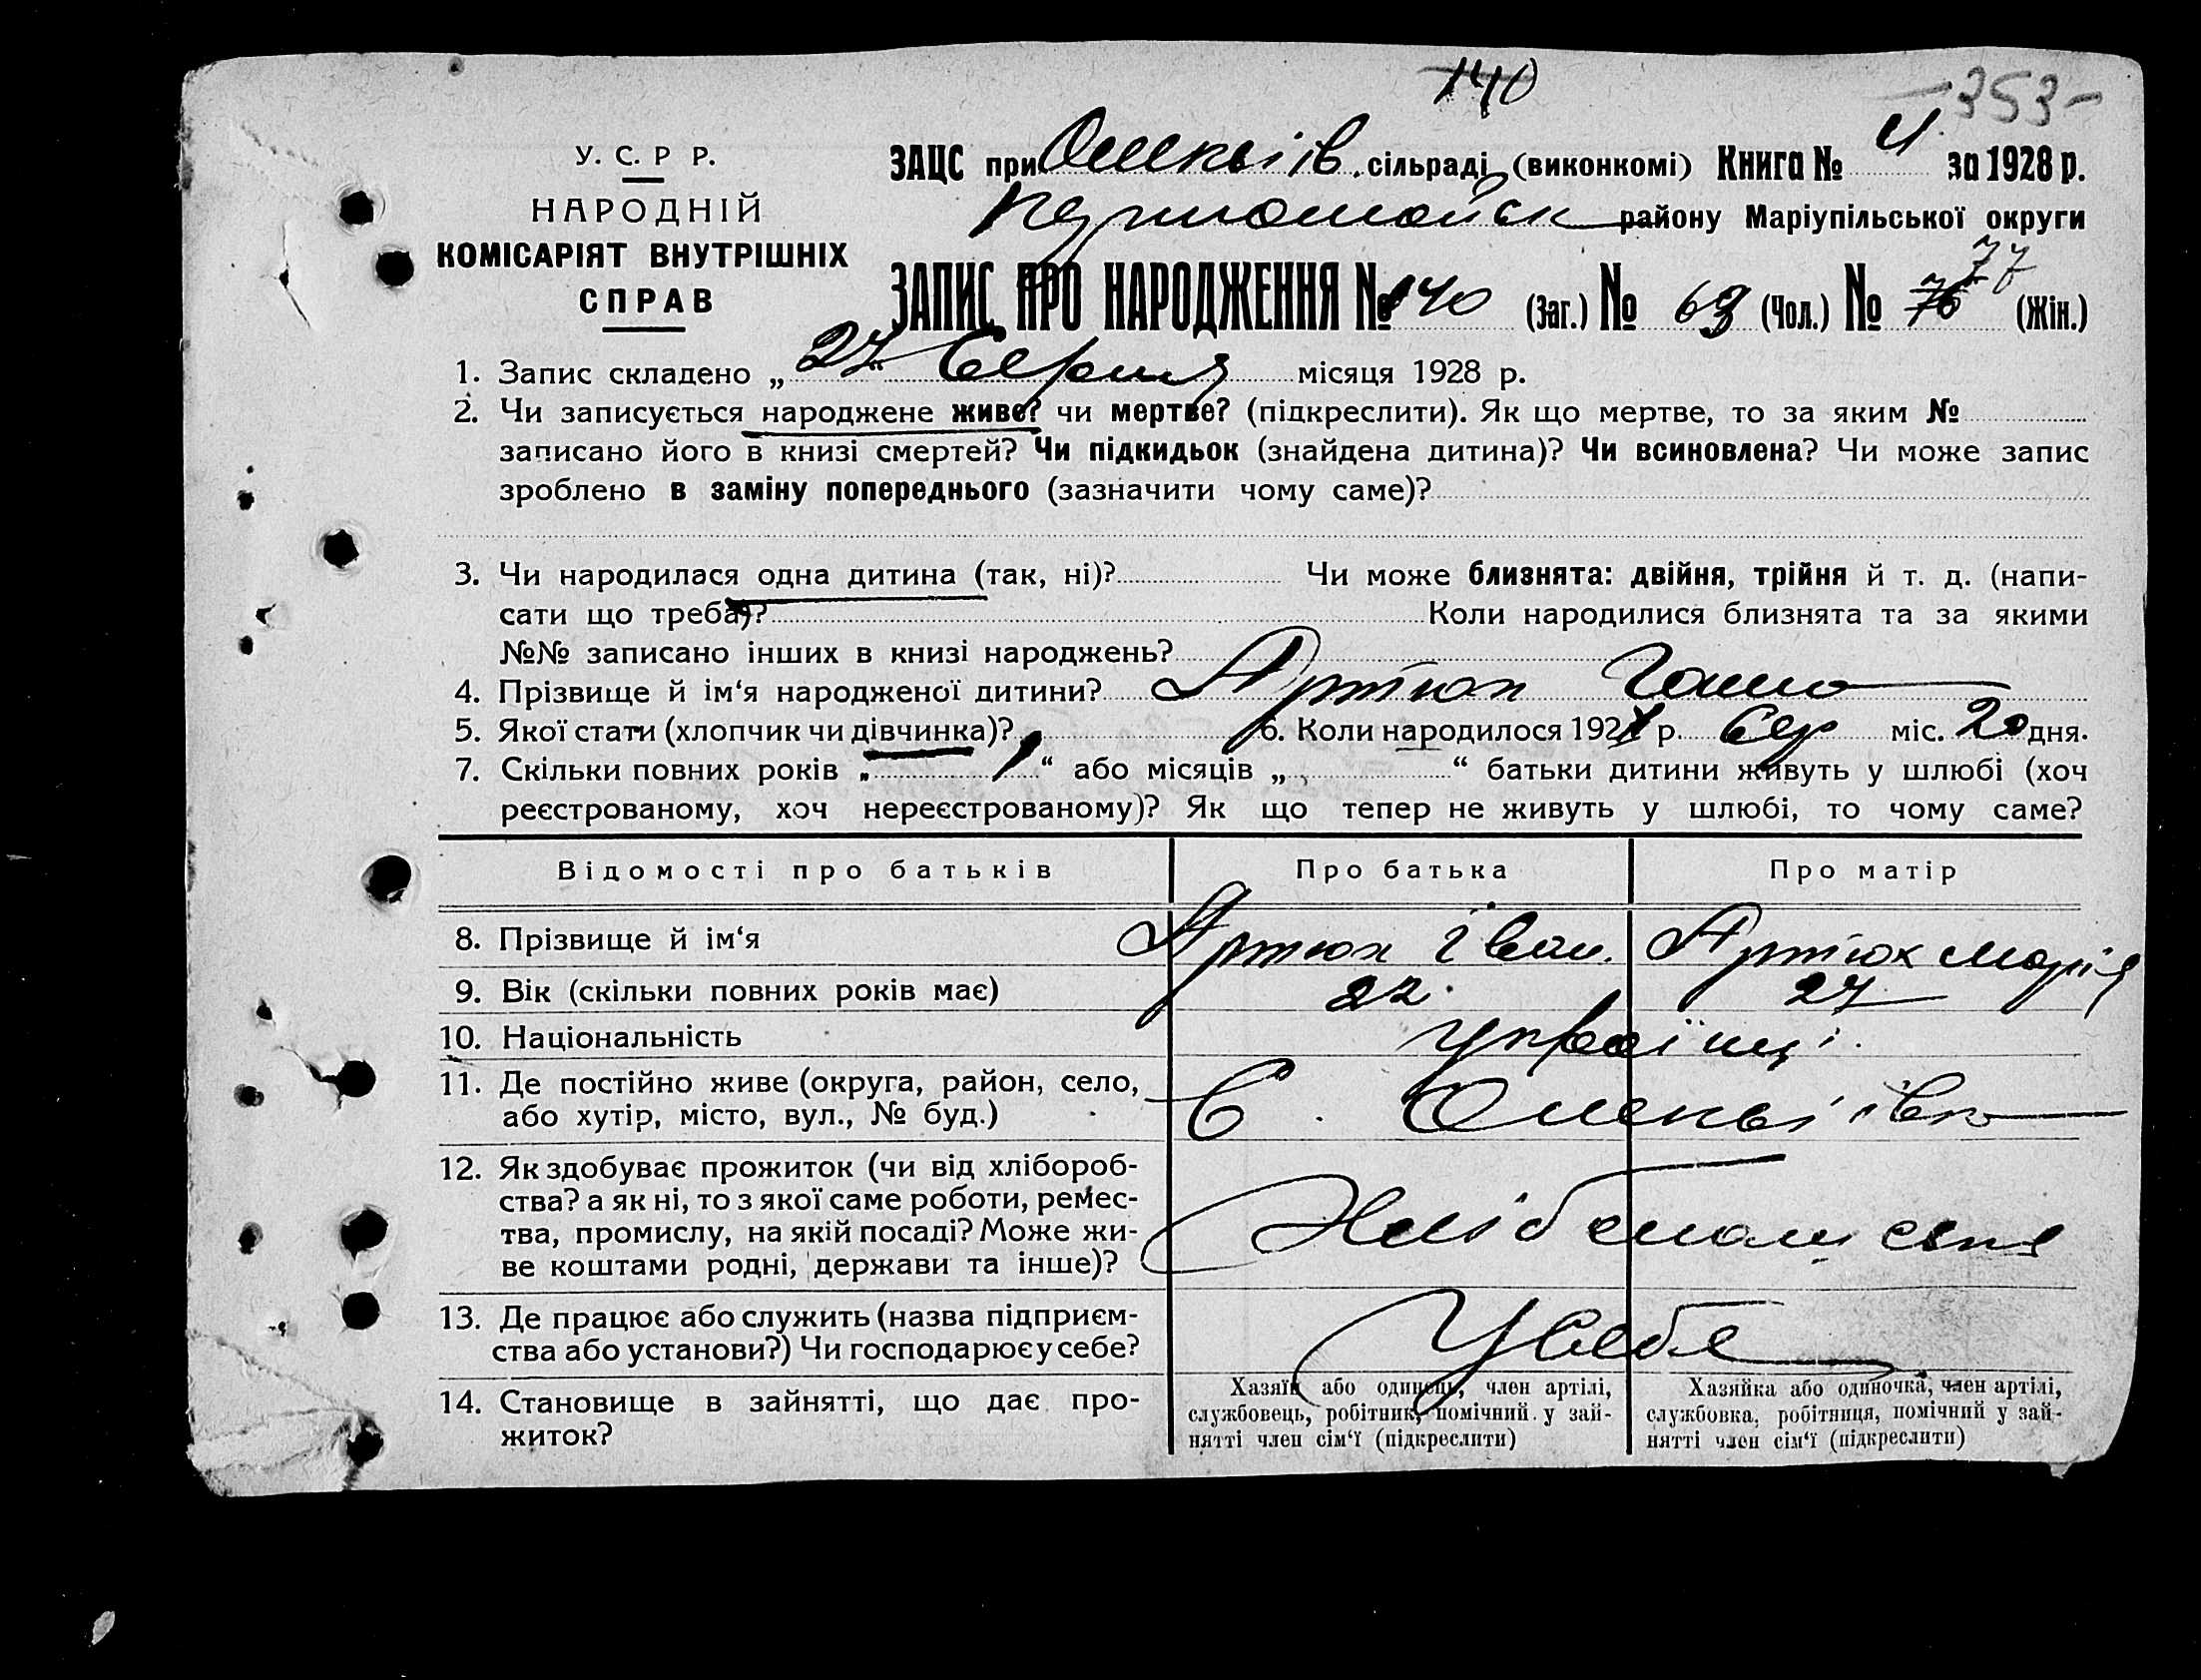 140
-353-
У. С. Р Р.
НАРОДНІЙ
КОМІСАРІЯТ ВНУТРІШНІХ
СПРАВ
ЗАЦС при сільраді (виконкомі) Книга № 4 за 1928 р.
Першомайськ району Маріупільської округи
77
ЗАПИС ПРО НАРОДЖЕННЯ № 140 (Заг.) № 63 (Чол.) № 76 (Жін.)
1. Запис складено „ 27 Серпня місяця 1928 р.
2. Чи записується народжене живе? чи мертве? (підкреслити). Як що мертве, то за яким №
записано його в книзі смертей? Чи підкидьок (знайдена дитина)? Чи всиновлена? Чи може запис
зроблено в заміну попереднього (зазначити чому саме)?
3. Чи народилася одна дитина (так, ні)? Чи може близнята: двійня, трійня й т. д. (напи-
сати що треба)? Коли народилися близнята та за якими
№№ записано інших в книзі народжень?
4. Прізвище й ім‘я народженої дитини? Артюх Ганна
5. Якої стати (хлопчик чи дівчинка)? 6. Коли народилося 192 р. Сер міс. 20 дня.
7. Скільки повних років „ 1 “ або місяців „ “ батьки дитини живуть у шлюбі (хоч
реєстрованому, хоч нереєстрованому)? Як що тепер не живуть у шлюбі, то чому саме?
Відомості про батьків Про батька Про матір
8. Прізвище й ім‘я Артюх Іван. Артюх Марія
9. Вік (скільки повних років має) 22. 27
10. Національність Українці.
11. Де постійно живе (округа, район, село,
або хутір, місто, вул., № буд.) С.
12. Як здобуває прожиток (чи від хлібороб-
ства? а як ні, то з якої саме роботи, ремес-
тва, промислу, на якій посаді? Може жи-
ве коштами родні, держави та інше)?
13. Де працює або служить (назва підприєм-
ства або установи?) Чи господарює у себе? У себе
14. Становище в зайнятті, що дає про-
житок?
Хазяїн або одинець, член артілі,
службовець, робітник, помічний у зай-
нятті член сім‘ї (підкреслити)
Хазяйка або одиночка, член артілі,
службовка, робітниця, помічний у зай-
нятті член сім‘ї (підкреслити)